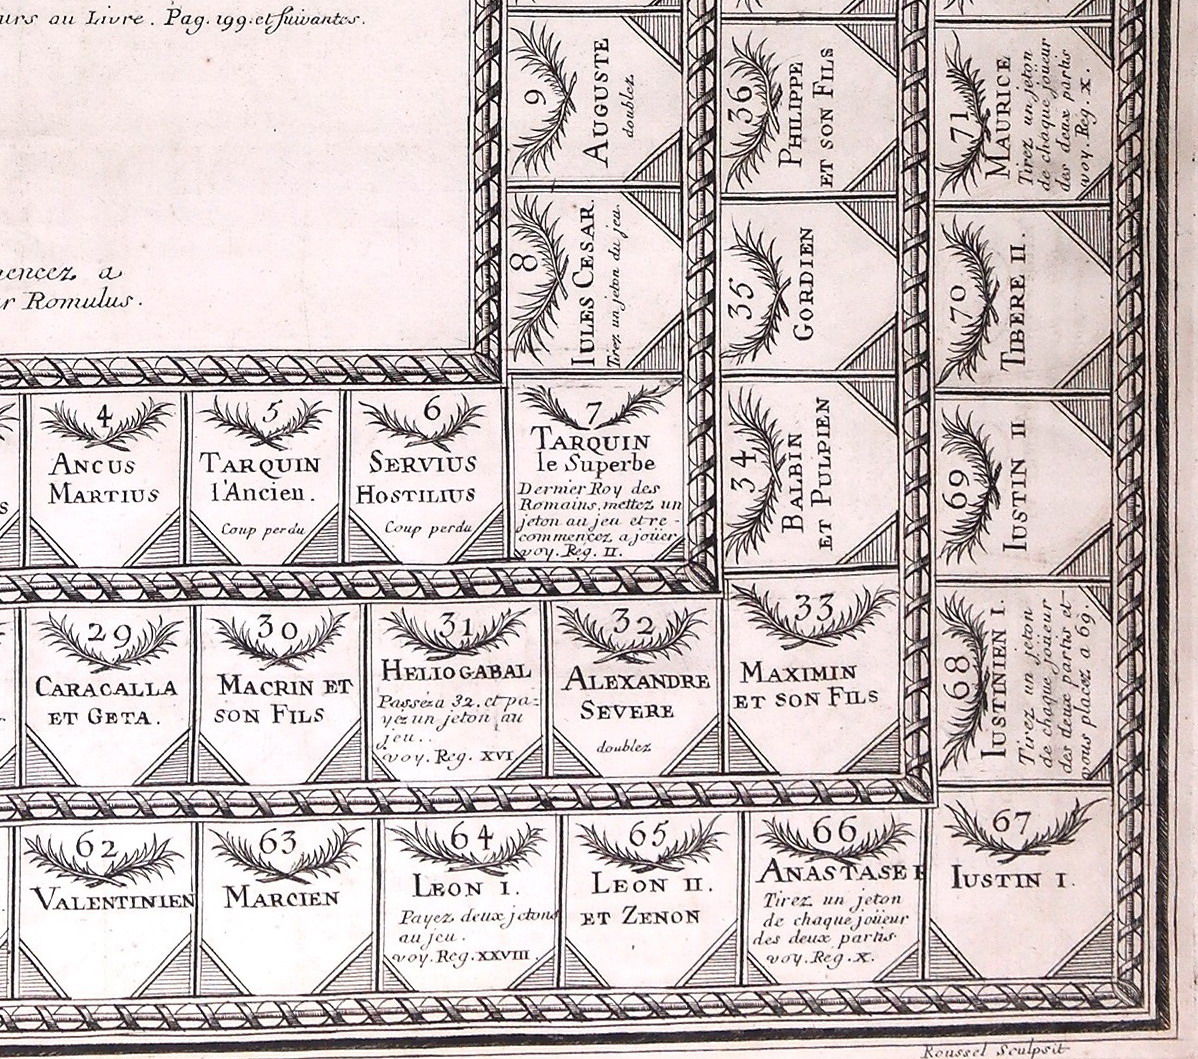 urs au Livre. Pag. 199. et suivantes.
encez a
r Romulus.
4
ANCUS
MARTIUS
5
TARQUIN
l'Ancien.
Coup perdu
6
SERVIUS
HOSTILIUS
Coup perdu
7
TARQUIN
le Superbe
Dernier Roy des
Romains, mettez un
jeton au jeu et re-
commencez a joüer
voy. Reg. II.
8
IULES CESAR.
Tirez un jeton du jeu.
9
AUGUSTE
doublez
29
CARACALLA
ET GETA.
30
MACRIN ET
SON FILS
31
HELIOGABAL
Passéz a 32. et pa-
yéz un jeton au
jeu..
voy. Reg. XVI
32
ALEXANDRE
SEVERE
doublez
33
MAXIMIN
ET SON FILS
34
BALBIN
ET PULPIEN
35
GORDIEN
36
PHILIPPE
ET SON FILS
62
VALENTINIEN
63
MARCIEN
64
LEON I.
Payez deux jetons
au jeu.
voy. Reg. XXVIII.
65
LEON II.
ET ZENON
66
ANASTASE I
Tirez un jeton
de chaque joüeur
des deux partis.
voy. Reg. X.
67
IUSTIN I.
68
IUSTINIEN I.
Tirez un jeton
de chaque joüeur
des deux partis et
vous placez a 69.
69
IUSTIN II
70
TIBERE II.
71
MAURICE
Tirez un jeton
de chaque joüeur
des deux partis
voy. Reg. X.
Roussel Sculpsit